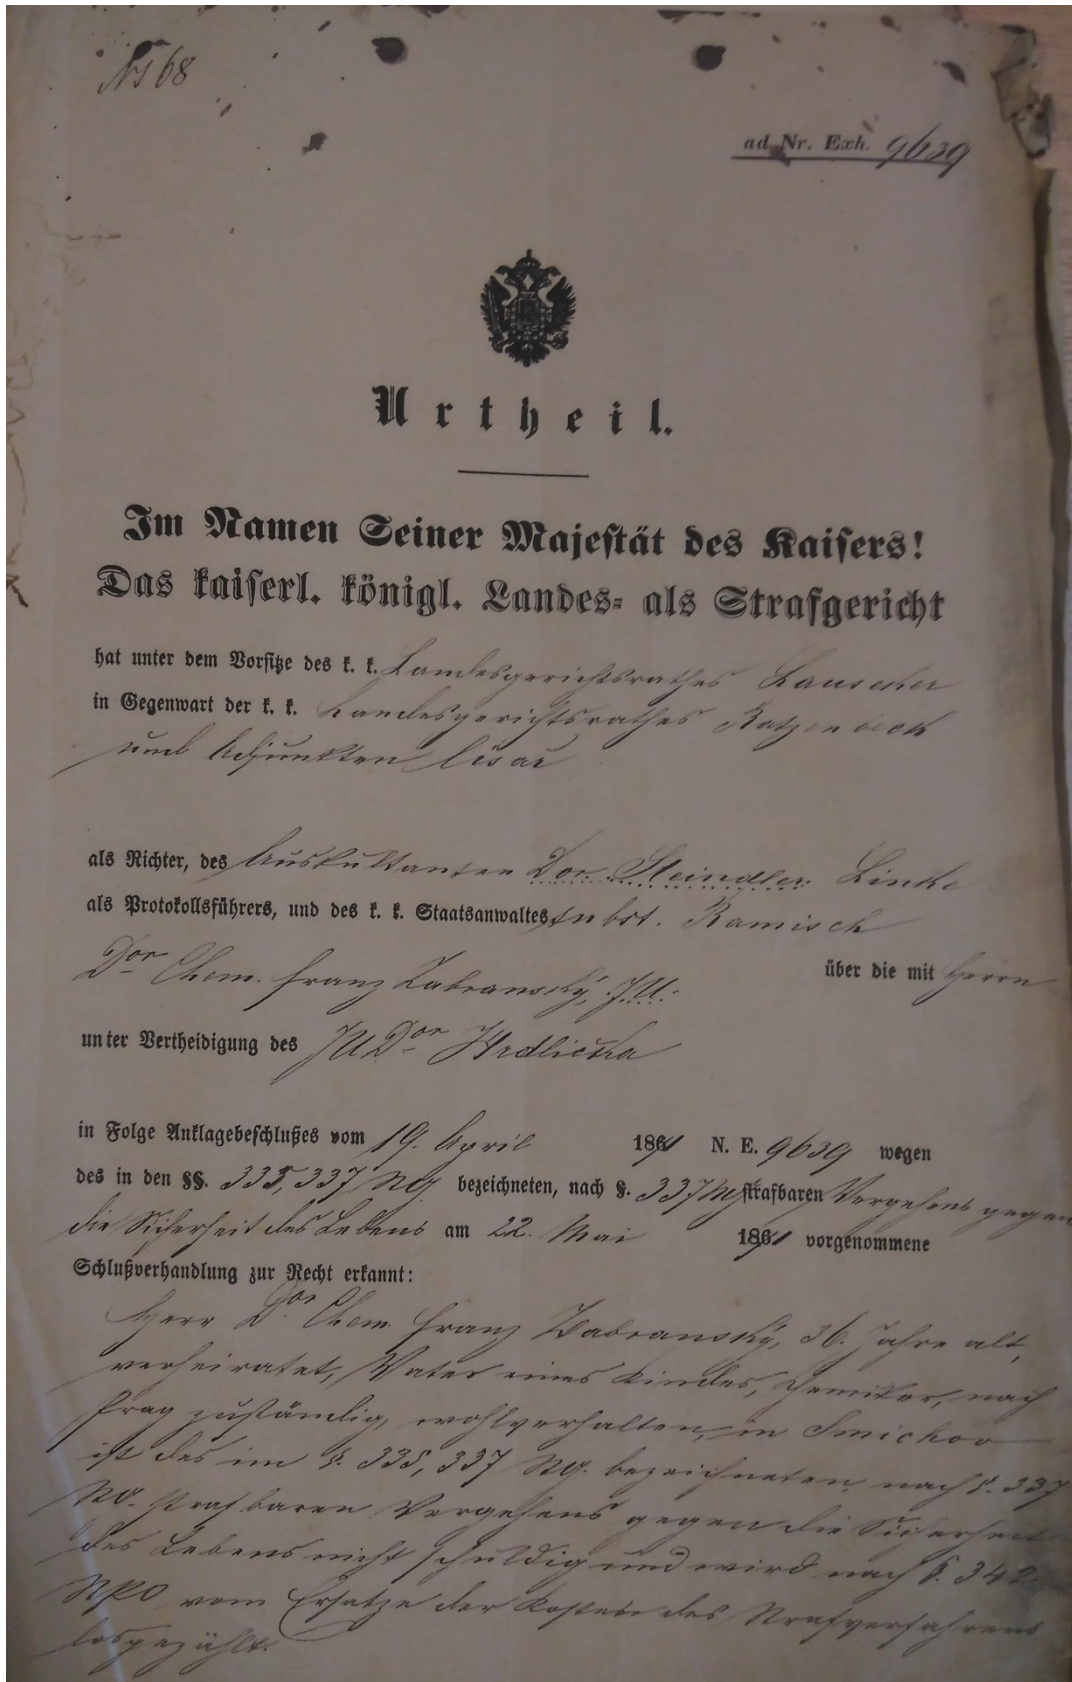 No 68
ad Nr. Exh. 9639
Urtheil.
Im Namen Seiner Majestät des Kaisers!
Das kaiserl. königl. Landes- als Strafgericht
hat unter dem Vorsitze des k. k. Landesgerichtsrathes Lauscher
in Gegenwart der k. k. Landesgerichtsrathes Katzenbeck
und Adjunkten Cisar
als Richter, des Auskultanten Dor. Steindler Linke
als Protokollsführers, und des k. k. Staatsanwaltes subst. Ramisch
über die mit Herrn
Dor Chem. Franz Zabransky, J.U.
unter Vertheidigung des JUDor Hrdlicžka
in Folge Anklagebeschlußes vom 19. April 1861 N. E. 9639 wegen
des in den §§. 335, 337 StG. bezeichneten, nach §. 337 StG strafbaren Vergehens gegen
die Sicherheit des Lebens am 22. Mai 1861 vorgenommene
Schlußverhandlung zur Recht erkannt:
Herr Dor. Chem. Franz Zabransky, 36. Jahre alt,
verheiratet, Vater eines Kindes, Chemiker, nach
Prag zuständig, wohlverhalten, in Smichov
ist des im §. 335, 337 StG. bezeichneten, nach §. 337
StG. strafbaren Vergehens gegen die Sicherheit
des Lebens nicht schuldig und wird nach §. 342.
StPO vom Ersatze der Kosten des Strafverfahrens
losgezählt.